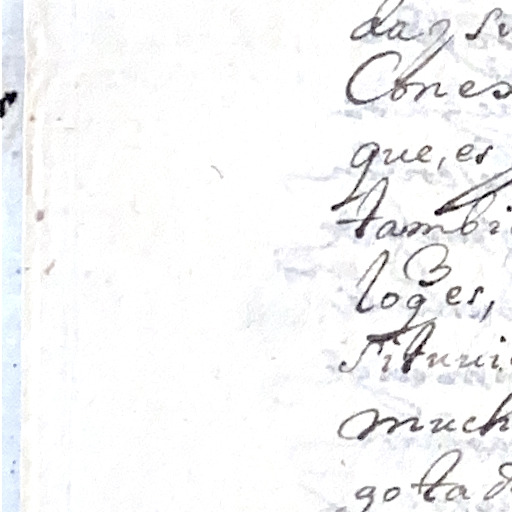 daz su
Cones
que, es
tambi
loges,
situui
much
gotad